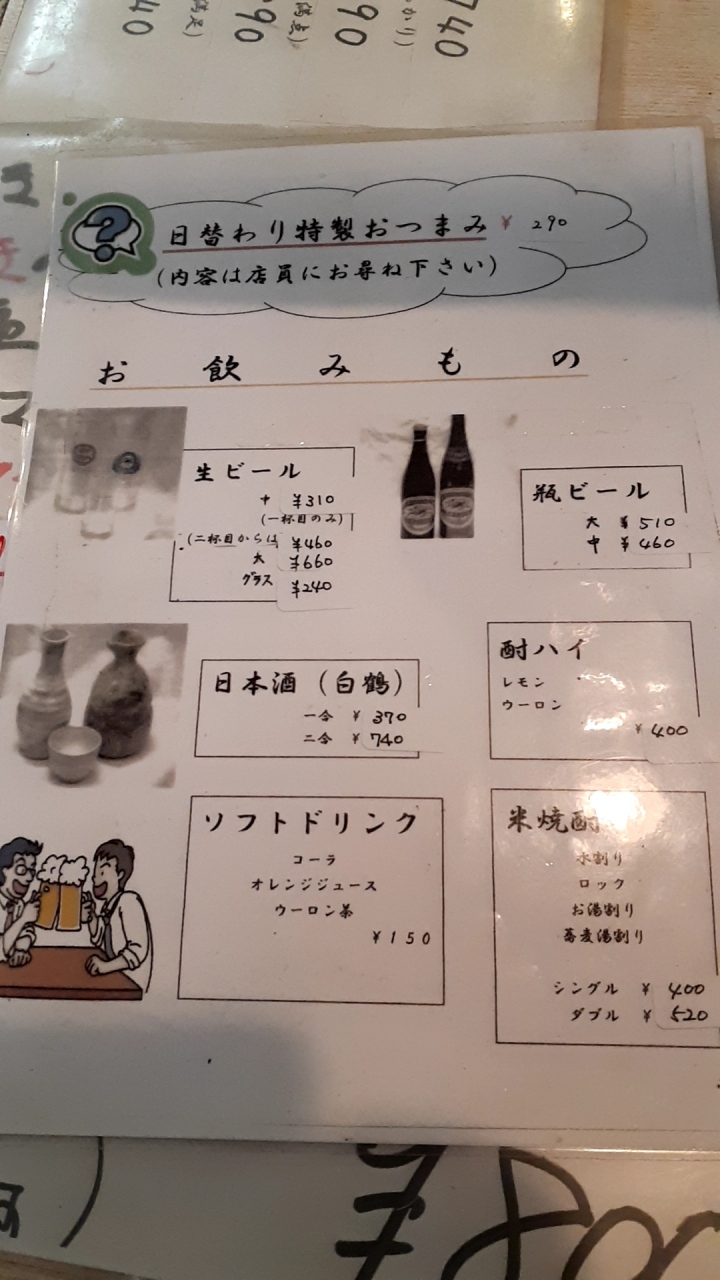 740
かり)
90
90
40
日替わり特製おつまみ ¥ 290
(内容は店員にお尋ね下さい)
お飲みもの
生ビール
中 ¥310
(一杯目のみ)
(二杯目からは ¥460
大 ¥660
グラス ¥240
瓶ビール
大 ¥ 510
中 ¥ 460
日本酒(白鶴)
一合 ¥ 370
二合 ¥ 740
酎ハイ
レモン
ウーロン
¥400
ソフトドリンク
コーラ
オレンジジュース
ウーロン茶
¥150
米焼酎
水割り
ロック
お湯割り
蕎麦湯割り
シングル ¥ 400
ダブル ¥ 520